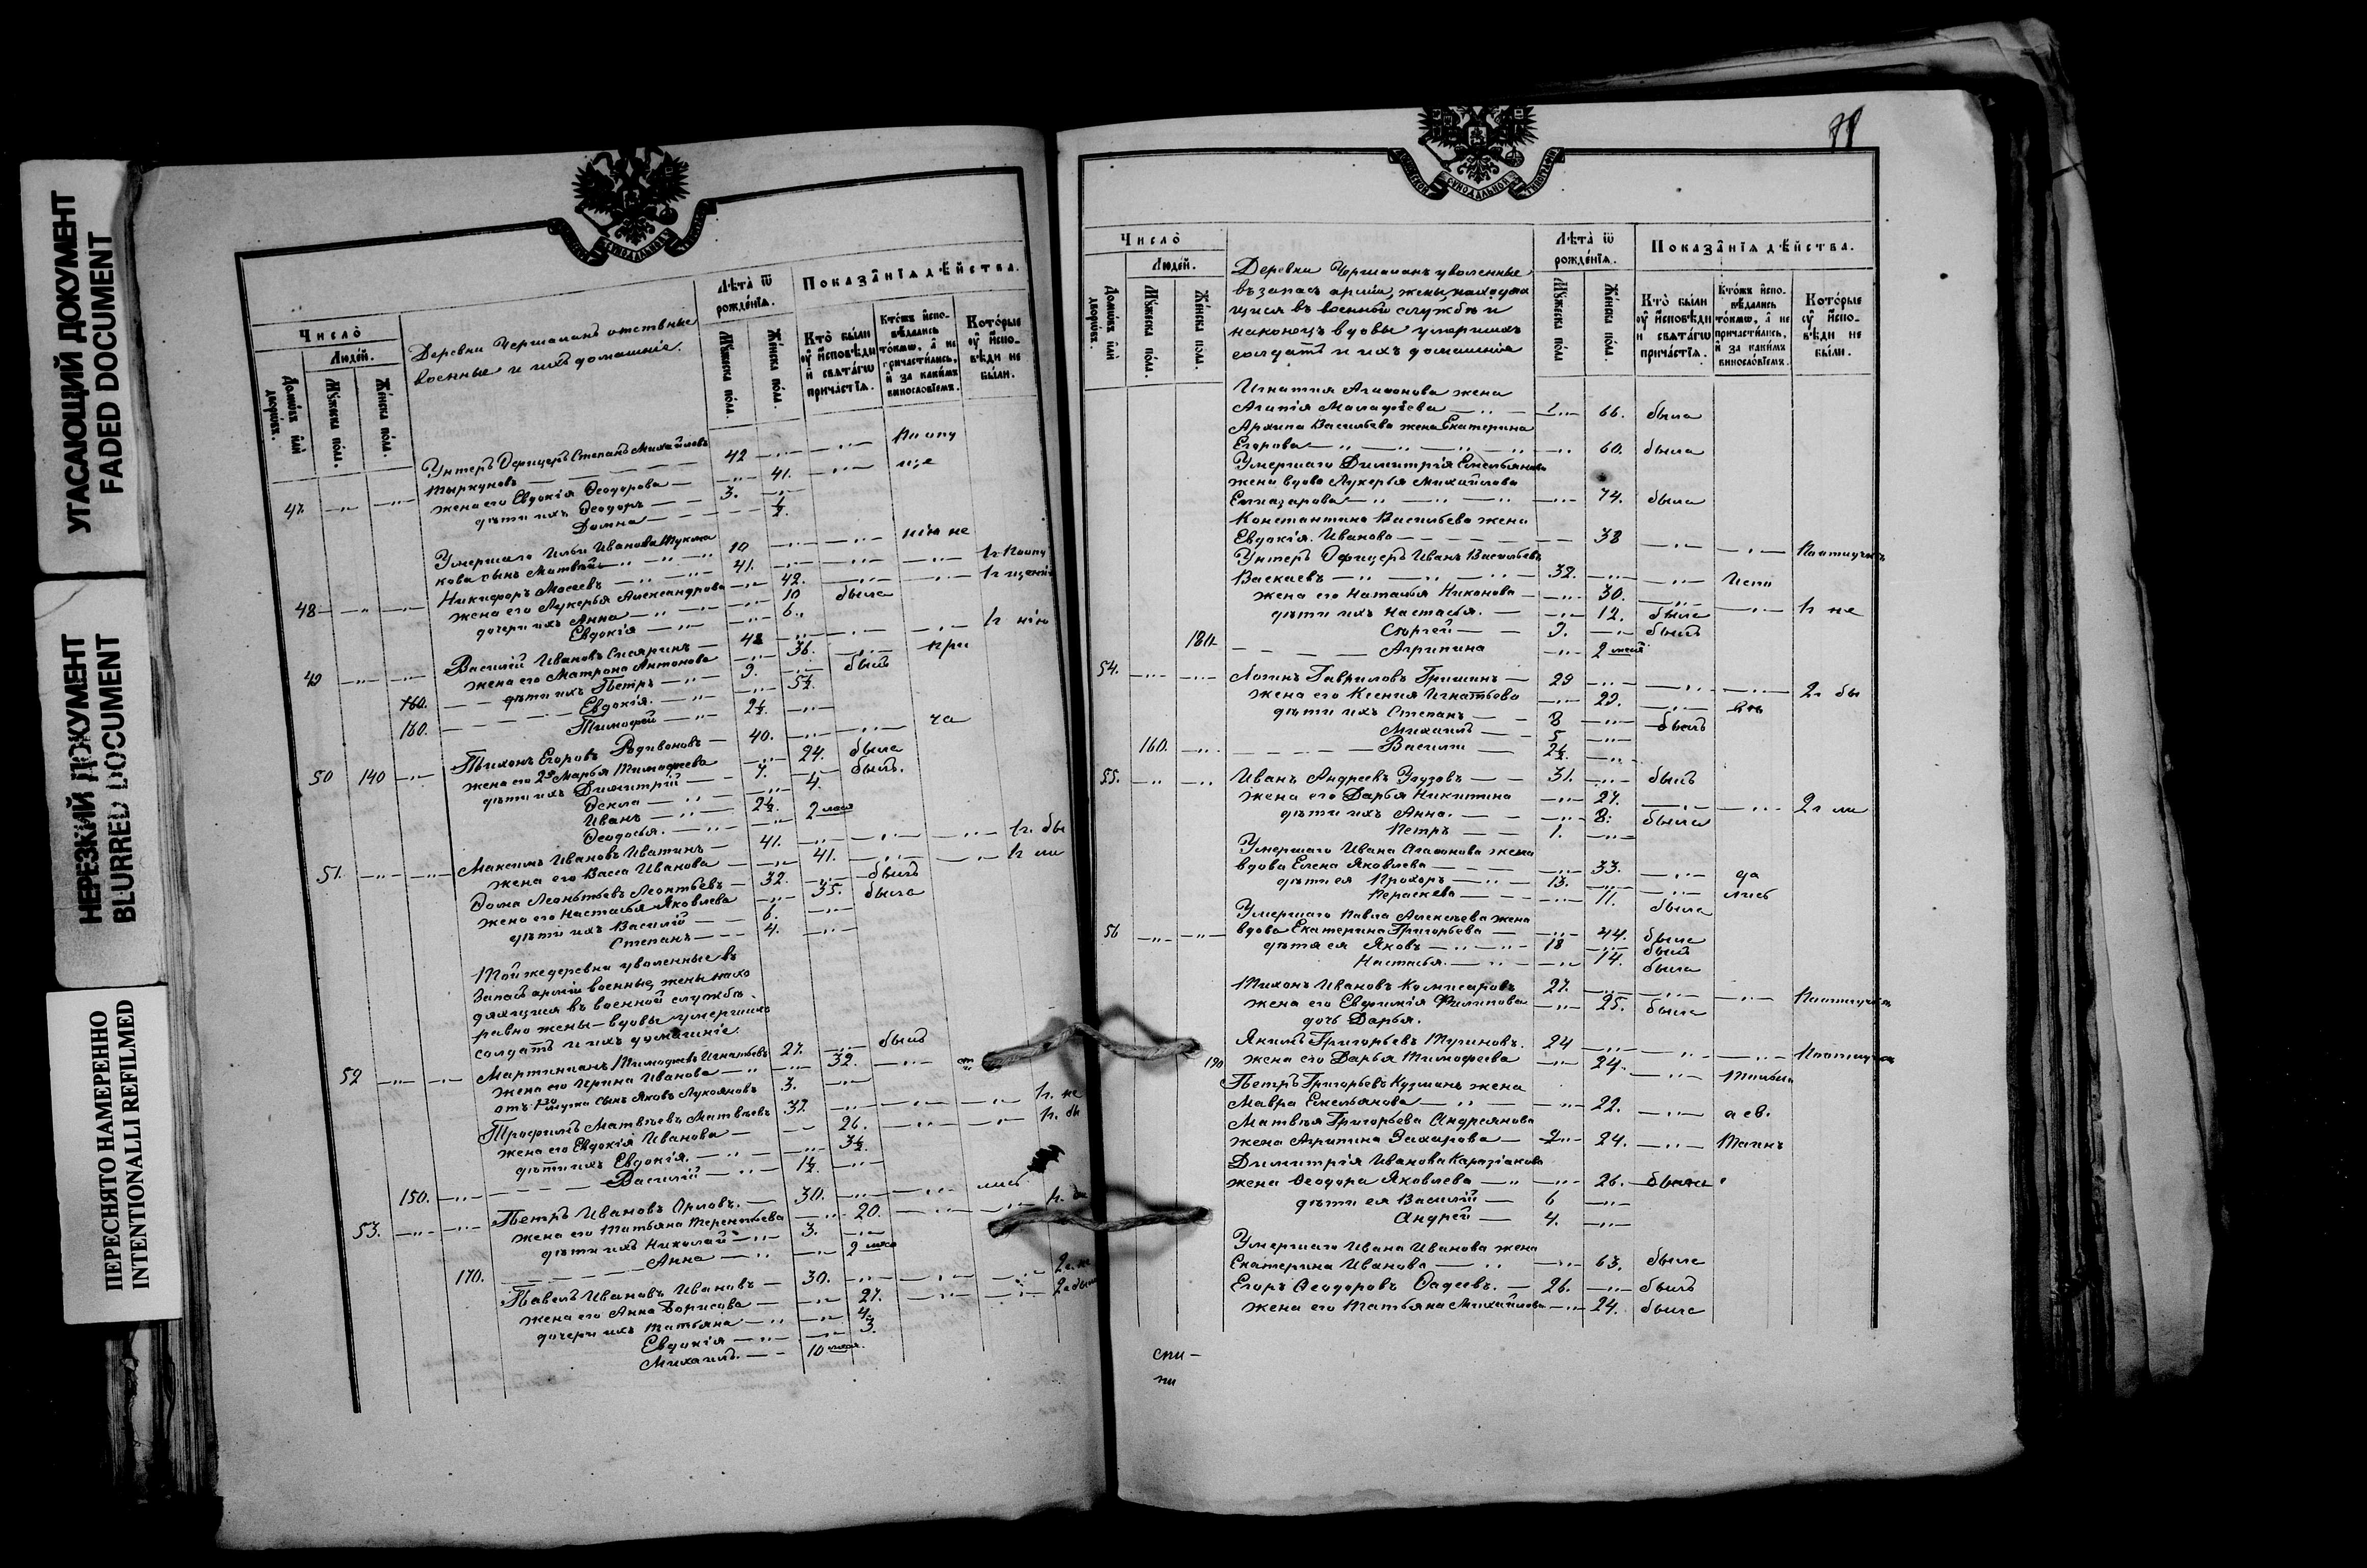 УГАСАЮЩИЙ ДОКУМЕНТ
FADED DOCUMENT
НЕРЕЗКИЙ ДОКУМЕНТ
BLURRED DOCUMENT
ПЕРЕСНЯТО НАМЕРЕННО
INTENTIONALLI REFILMED
Число̀
Людей.
Домовъ или дворовъ.
Мужеска пола.
Женска пола.
Деревни Чершаланъ отставные
военные и ихъ домашніе.
Лѣта ѿ рожденїѧ.
Мужеска пола.
Женска пола.
Показанїѧ дѣйства.
Кто были
ᲂу исповѣди
и свѧтагѡ
причастїѧ.
Ктожъ испо-
вѣдались
токмѡ, а не
причастились,
и за какимъ
винословїемъ.
Которые
ᲂу испо-
вѣди не
были.
Унтеръ Офицеръ Степанъ Михайловъ
47. Тыркуновъ 42 По опу
жена его Евдокія Ѳеодорова 41. ще
дѣти ихъ Ѳеодоръ 3.
Домна ½.
Умершаго Ильи Иванова
кова сынъ Матвѣй 10 нію не
48 Никифоръ Мосеевъ 41. 1 г. По опу
жена его Лукерья Александрова 42. 1 г.
дочери ихъ Анна 10 была
Евдокія 6.
49 Василій Ивановъ 48 1 г. нію
жена его Матрона Антонова 36. при
дѣти ихъ Петръ 9. былъ
160. Евдокія. 5½.
160. Тимофей 2½.
50 140 Тихонъ Егоровъ Родивоновъ 40. ча
жена его 2я Марья Тимофеева 24. была
дѣти ихъ Димитрій 7. былъ.
Ѳекла 4.
Иванъ 2½.
Ѳеодосья. 2
51. Максимъ Ивановъ 41. 1 г. бы
жена его Васса Иванова 41. 1 г. ли
Ѳома Леонтьевъ Леонтьевъ 32. былъ
жена его Настасья Яковлева 35. была
дѣти ихъ Василій 6.
Степанъ 4.
Той же деревни уволенные въ
запасъ арміи военные, жены нахо
дящіяся въ военной службѣ.
равно жены-вдовы умершихъ
солдатъ и ихъ домашніе.
52 Мартиніанъ Тимофеевъ Игнатьевъ 27. былъ
жена его Ирина Иванова 32.
отъ 1го мужа сынъ Яковъ Лукояновъ 3.
Трофимъ Матвѣевъ Матвѣевъ 32. 1 г. не
жена его Евдокія Иванова 26. 1 г. бы
дѣти ихъ Евдокія. 3½.
150. Василій 1½.
53. Петръ Ивановъ Орловъ. 30. лись
жена его Татьяна Терентьева 20. 1 г.
дѣти ихъ Николай 3.
170. Анна 2
Павелъ Ивановъ Ивановъ 30. 2 г. не
жена его Анна Борисова 27. 2 г. были
дочери ихъ Татьяна 4.
Евдокія 3.
Михаилъ. 10
Число̀
Людей.
Домовъ или дворовъ.
Мужеска пола.
Женска пола.
Деревни Чершаланъ уволенные
въ запасъ арміи, жены, находя
щіяся въ военной службѣ и
наконецъ вдовы умершихъ
солдатъ и ихъ домашніе
Лѣта ѿ
рожденїѧ.
Мужеска пола
Женска пола.
Показанїѧ дѣйства.
Кто были
ᲂу исповѣди
и свѧтагѡ
причастїѧ.
Ктожъ испо-
вѣдались
токмѡ, а не
причастились,
и за какимъ
винословїемъ.
Которые
ᲂу испо-
вѣди не
были.
Игнатія Агафонова жена
Агапія Малафѣева 66. была
Архипа Васильева жена Екатерина
Егорова 60. была
Умершаго Димитрія Емельянова
жена вдова Лукерья Михайлова
74. была
Константина Васильева жена
Евдокія Иванова 38
Унтеръ Офицеръ Иванъ Васильевъ
Васкаевъ 32. Испо
жена его Наталья Никонова 30. 1 г. не
дѣти ихъ Настасья. 12. была
Сергѣй 9. былъ
180. Агрипина 2
54. Логинъ Гавриловъ Гришинъ 29 2 г. бы
жена его Ксенія Игнатьева 29.
дѣти ихъ Степанъ 8 былъ
Михаилъ 5
160. Василій 2½.
55. Иванъ Андреевъ 31. былъ
жена его Дарья Никитина 27. 2 г. ли
дѣти ихъ Анна. 8. была
Петръ 1.
Умершаго Ивана Агафонова жена
вдова Елена Яковлева 33. да
дѣти ея Прохоръ 13. лись
Пераскева 11. была
Умершаго Павла Алексѣева жена
56 вдова Екатерина Григорьева 44. была
дѣти ея Яковъ 18 былъ
Настасья. 14. была
Тихонъ Ивановъ Комисаровъ 27.
жена его Евфимія Филипова 25. была
дочь Дарья.
Якимъ Григорьевъ 24
190 жена его Дарья Тимофеева 24.
Петръ Григорьевъ Кузминъ жена
Мавра Емельянова 22.
Матвѣя Григорьева Андреянова
жена Агрипина Захарова 24.
Димитрія Иванова
жена Ѳеодора Яковлева 26. была
дѣти ея Василій 6
Андрей 4.
Умершаго Ивана Иванова жена
Екатерина Иванова 63. была
Егоръ Ѳеодоровъ Фадеевъ. 26. былъ
жена его Татьяна Михайлова 24. была